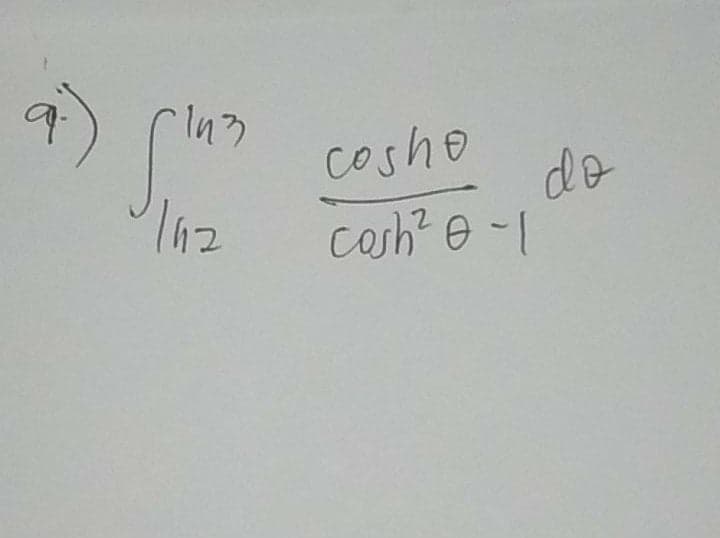 9.) ∫_{ln2}^{ln3} coshθ / (cosh²θ-1) dθ